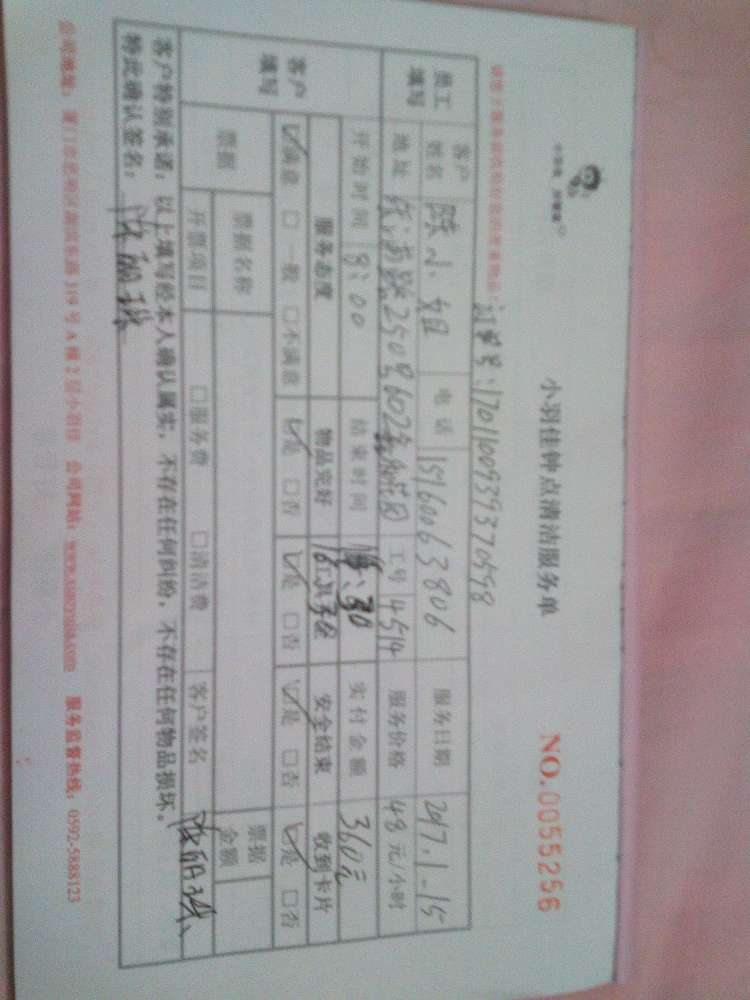 小羽佳钟点清洁服务单
NO.0055256
订单号:1701100939370598
员工填写
客户姓名 陈小姐 电话 15160063806 服务日期 2017.1-15
地址 250号602 工号 4514 服务价格 48元/小时
客户填写
开始时间 8:00 结束时间 :30 实付金额 360元
服务态度 物品完好 安全结束 收到卡片
☑满意 □一般 □不满意 ☑是 □否 ☑是 □否 ☑是 □否 ☑是 □否
票据 票据名称 票据金额
开票项目 □服务费 □清洁费 客户签名 陈丽珠
客户特别承诺:以上填写经本人确认属实,不存在任何纠纷,不存在任何物品损坏。
特此确认签名:陈丽珠
公司地址:厦门市思明区湖滨东路319号A幢2层小羽佳 公司网站:www.xiaoyujia.com 服务监督热线:0592-5888123